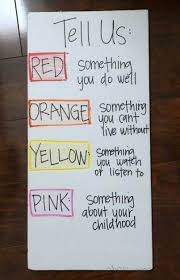 Tell Us:
RED: something
you do well
ORANGE: something
you can't
live without
YELLOW: something
you watch
or listen to
PINK: something
about your
childhood